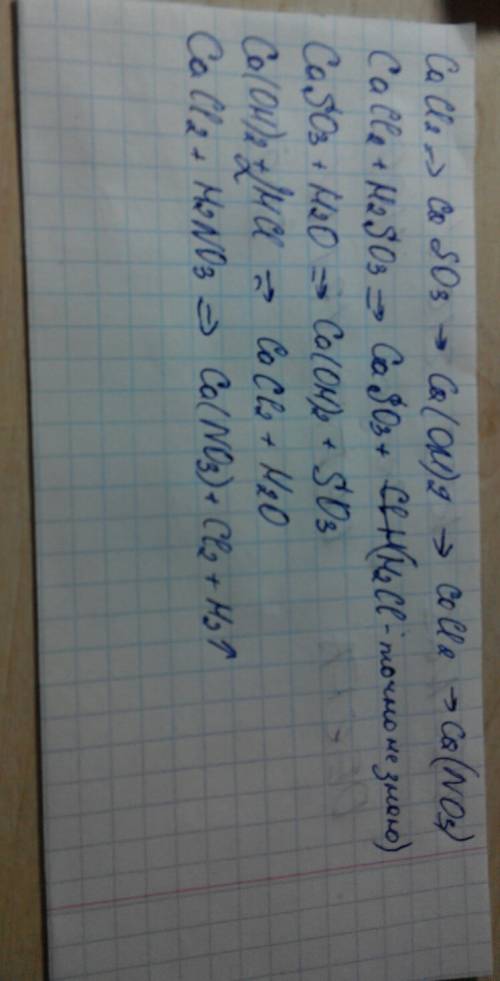 CaCl2 → CaSO3 → Ca(OH)2 → CaCl2 → Ca(NO3)
CaCl2 + H2SO3 ⇒ CaSO3 + (H2Cl - точно не знаю)
CaSO3 + H2O ⇒ Ca(OH)2 + SO3
Ca(OH)2 + 2HCl ⇒ CaCl2 + H2O
CaCl2 + H2NO3 ⇒ Ca(NO3) + Cl2 + H2↑